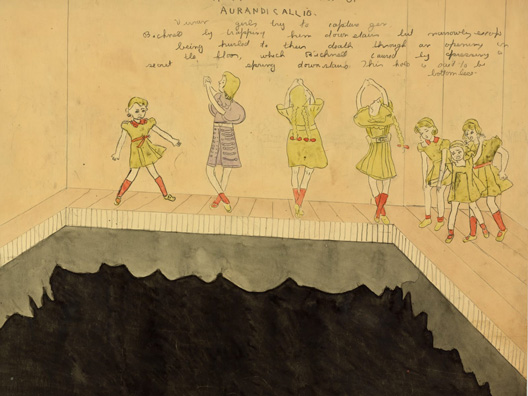 OF
AURANDICALLIO.
Vivian girls try to capture gen
by trapping him down stairs but narrowly escape
being hurled to their death through an opening in
the floor, which caused by pressing a
secret spring down stairs. This hole is said to be
bottomless